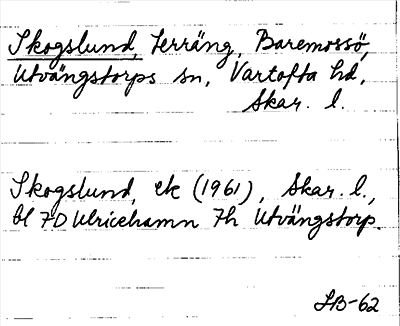 Skogslund, Terräng, Baremossö,
Utvängstorps sn, Vartofta hd,
Skar. l.
Skogslund, ek (1961), Skar. l.,
bl 7D Ulricehamn 7h Utvängstorp.
LB-62